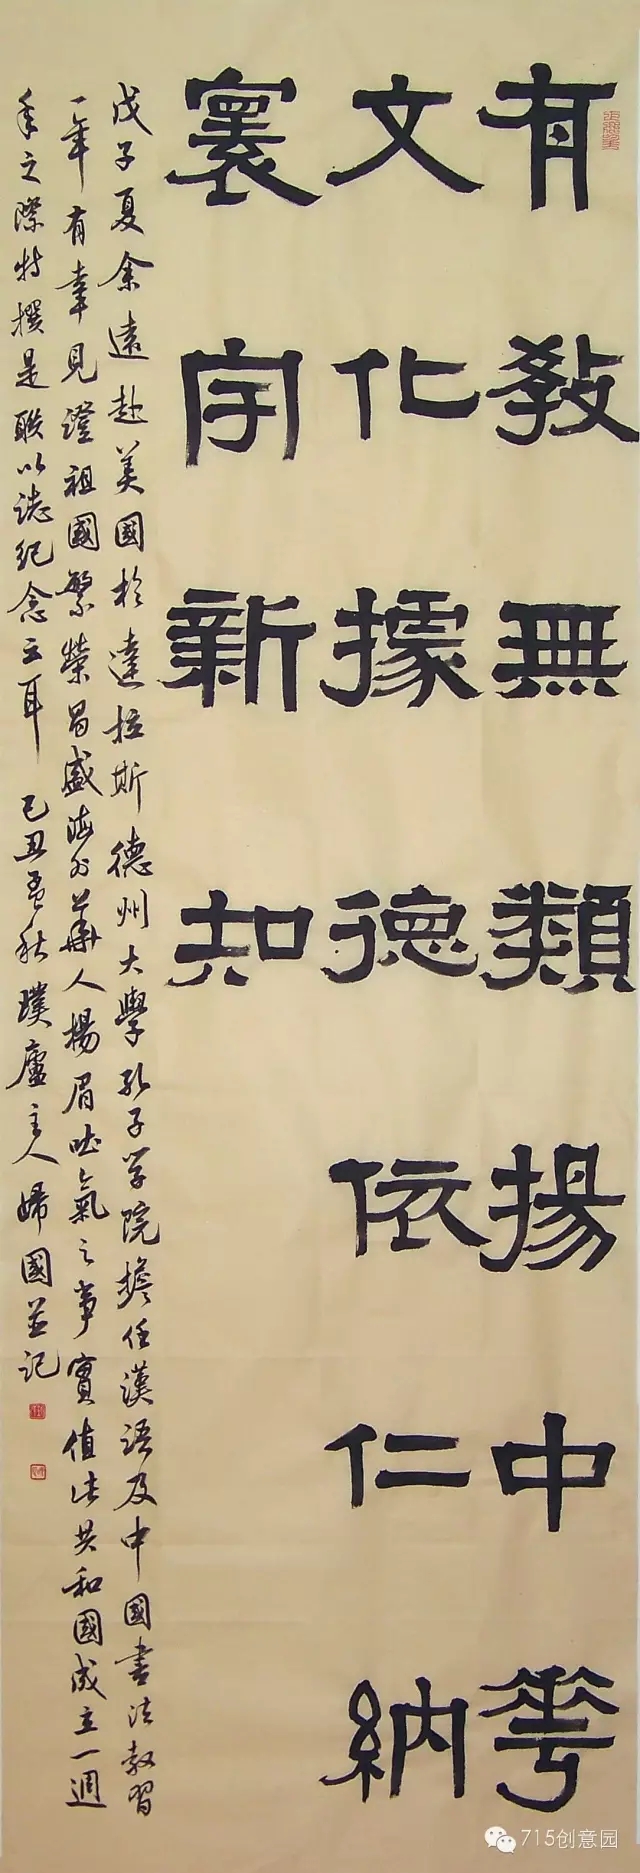 有教無類揚中華
文化據德依仁納
寰宇新知
戊子夏余遠赴美國於達拉斯德州大學孔子学院擔任漢語及中國書法教習
一年有幸見證祖國繁榮昌盛海外華人揚眉吐氣之事實值此共和國成立一週
年之際特撰是聯以誌紀念云耳 己丑孟秋璞廬主人婦國並記
715创意园